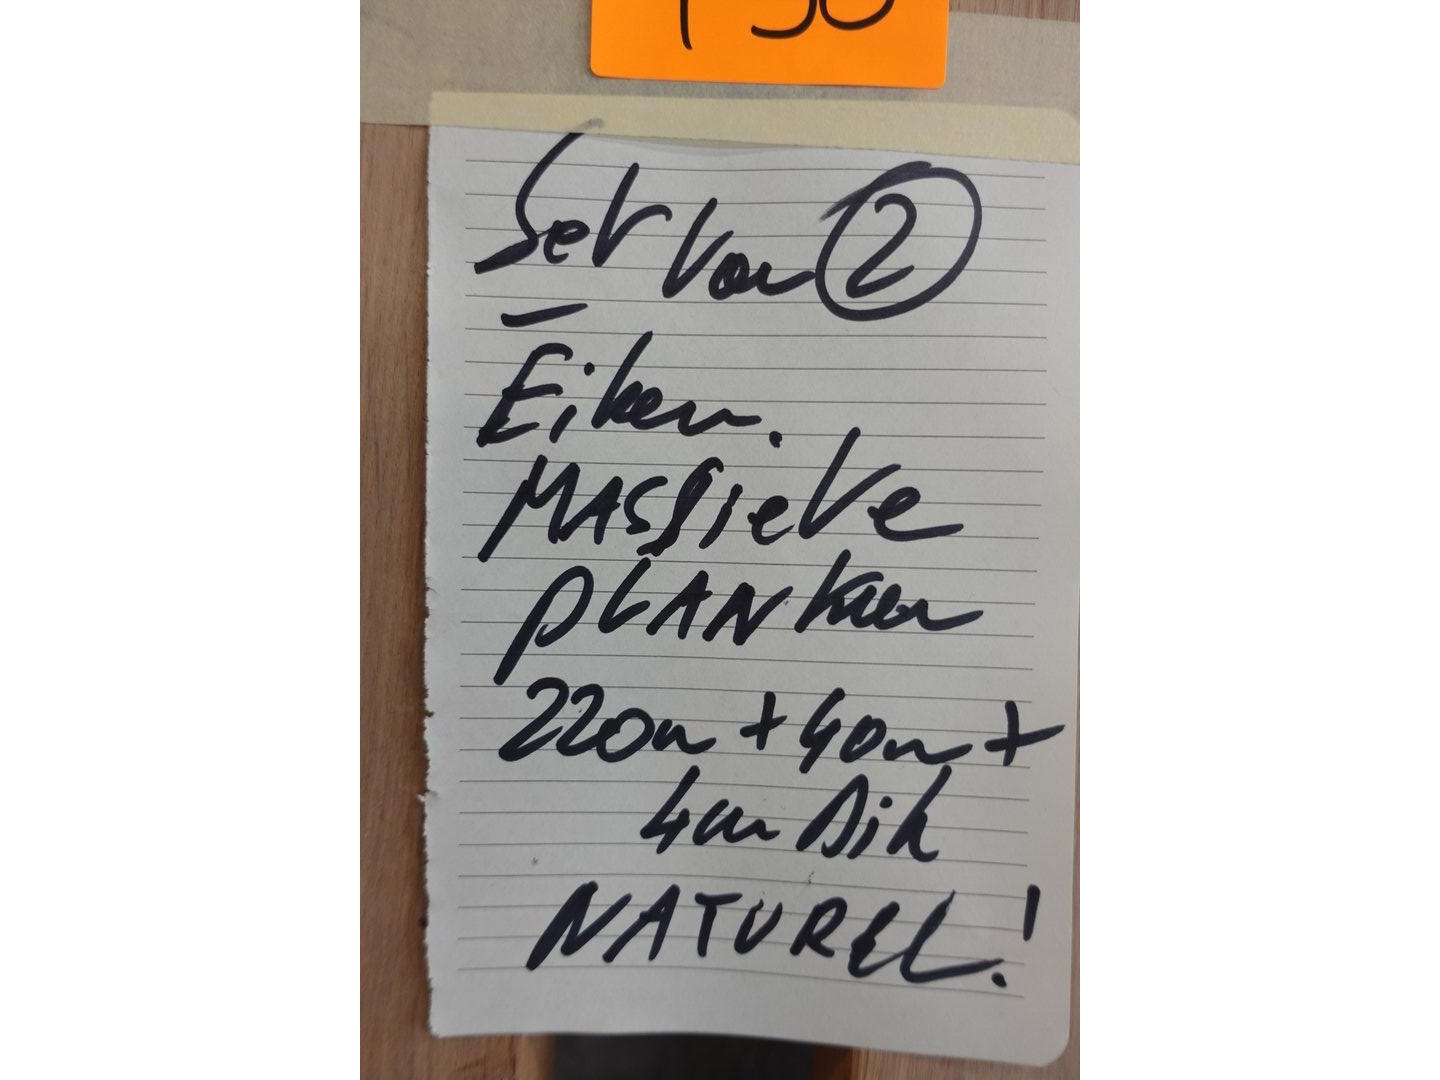 Set van 2
Eiken.
MASSieve
PLANken
220cm + 40cm +
4cm Dik
NATUREL.!